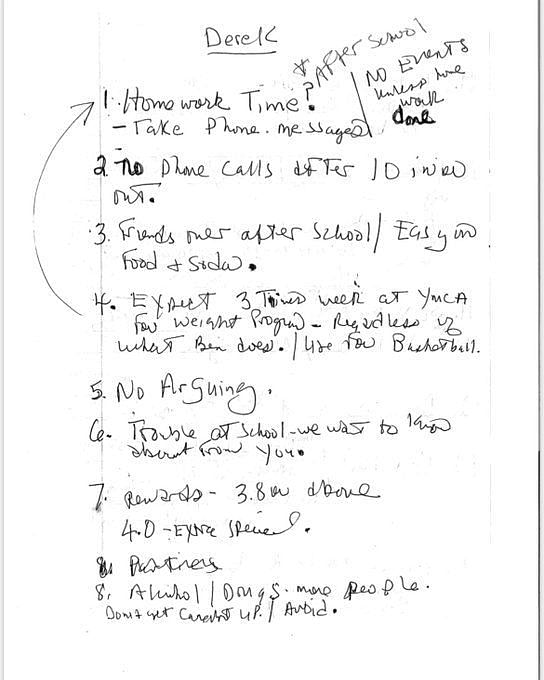 Derek
* After School
NO EVENTS
unless home
work
done
1. Homework Time?
- Take Phone messages
2. no phone calls after 10 in or
out.
3. Friends over after school / Easy on
Food & Soda.
4. Expect 3 Times week at YMCA
for weight Program - Regardless of
what Ben does. / Use for Basketball.
5. No Arguing.
6. Trouble at School - we want to know
about from you.
7. Rewards - 3.8 or above
4.0 - Extra special.
8. Partners
8. Alcohol / Drugs - more people.
Don't get Caught up. / Avoid.